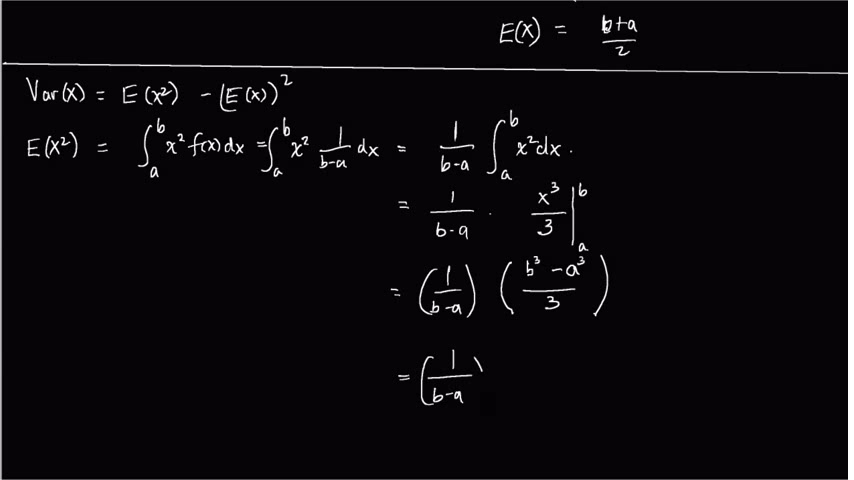 E(X) = b+a/2
Var(x) = E(x²) - (E(x))²
E(X²) = ∫_a^b x² f(x) dx = ∫_a^b x² 1/(b-a) dx = 1/(b-a) ∫_a^b x² dx.
= 1/(b-a) · x³/3 |_a^b
= (1/(b-a)) ((b³ - a³)/3)
= (1/(b-a))